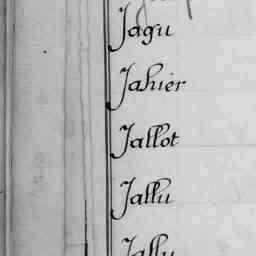 Jagu
Jahier
Jallot
Jallu
Jallu